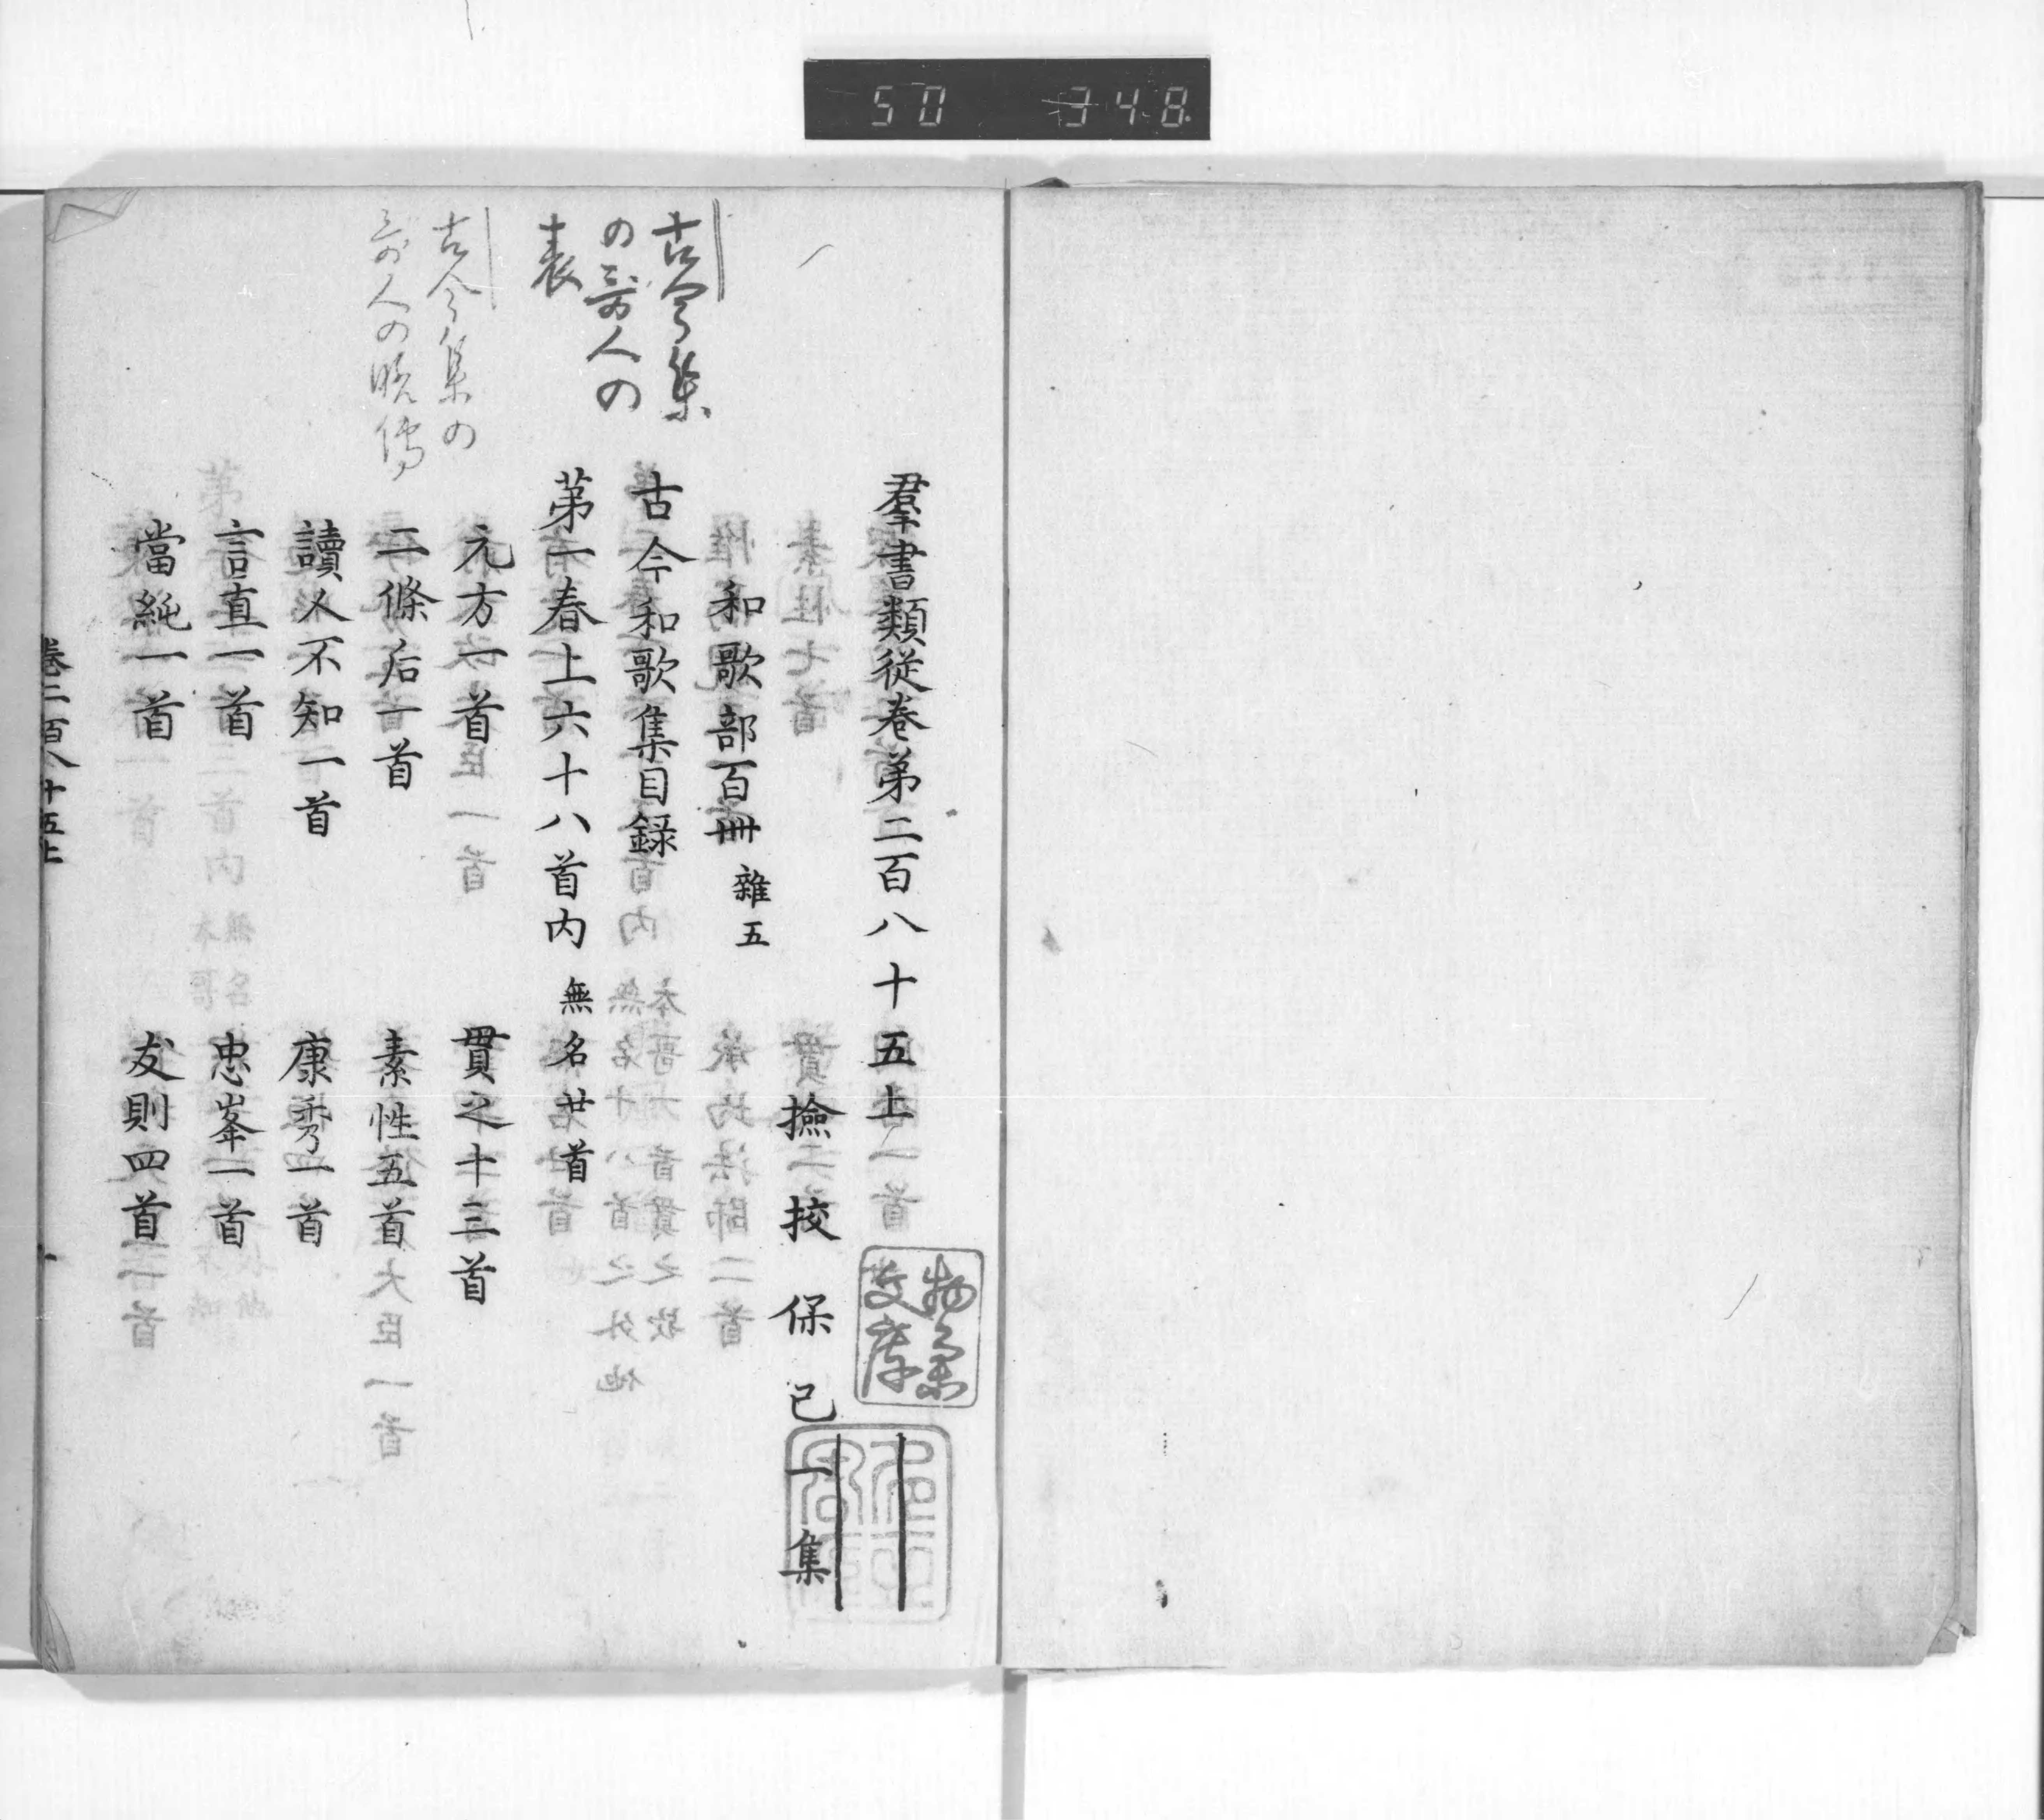 50 348
羣書類従巻第二百八十五上
撿挍保己一集
和歌部百卌 雜五
古今和歌集目録
第一春上六十八首内 無名廿首
元方一首 貫之十三首
二條后一首 素性五首
讀人不知一首 康秀一首
言直一首 忠峯一首
當純一首 友則四首
巻二百八十五上
古今集
の哥人の
表
古今集の
哥人の略傳